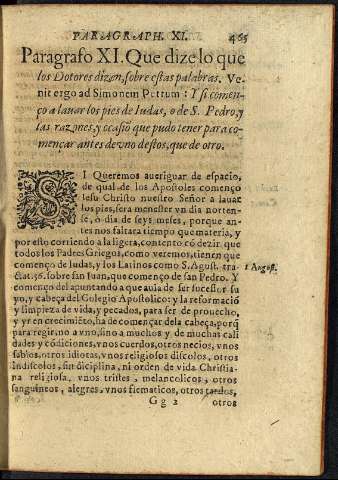 PARAGRAPH. XI. 465
Paragrafo XI. Que dize lo que
los Dotores dizen, sobre estas palabras. Ve-
nit ergo ad Simonem Petrum: Y si comen-
ço a lauar los pies de Iudas, o de S. Pedro, y
las razones, y ocasiõ que pudo tener para co-
mençar antes de vno destos, que de otro.
SI Queremos aueriguar de espacio,
de qual de los Apostoles començo
Iesu Christo nuestro Señor a lauar
los pies, sera menester vn dia norten-
te, o dia de seys meses, porque an-
tes nos faltara tiempo que materia, y
por esto corriendo a la ligera, contento cõ dezir que
todos los Padres Griegos, como veremos, tienen que
començo de Iudas, y los Latinos como S. Agust. tra-
ctat. 56. sobre san Iuan, que començo de san Pedro. Y
començo del apuntando a que auia de ser sucessor su
yo, y cabeça del Colegio Apostolico: y la reformaciõ
y limpieza de vida, y pecados, para ser de prouecho,
y yr en crecimiẽto, ha de començar de la cabeça, porq̃
para regir, no a vno, sino a muchos y de muchas cali
dades y cõdiciones, vnos cuerdos, otros necios, vnos
sabios, otros idiotas, vnos religiosos discolos, otros
Indiscolos, sin diciplina, ni orden de vida Christia-
na religiosa, vnos tristes, melancolicos, otros
sanguineos, alegres, vnos flematicos, otros tardos,
Gg 2 otros
1 August.